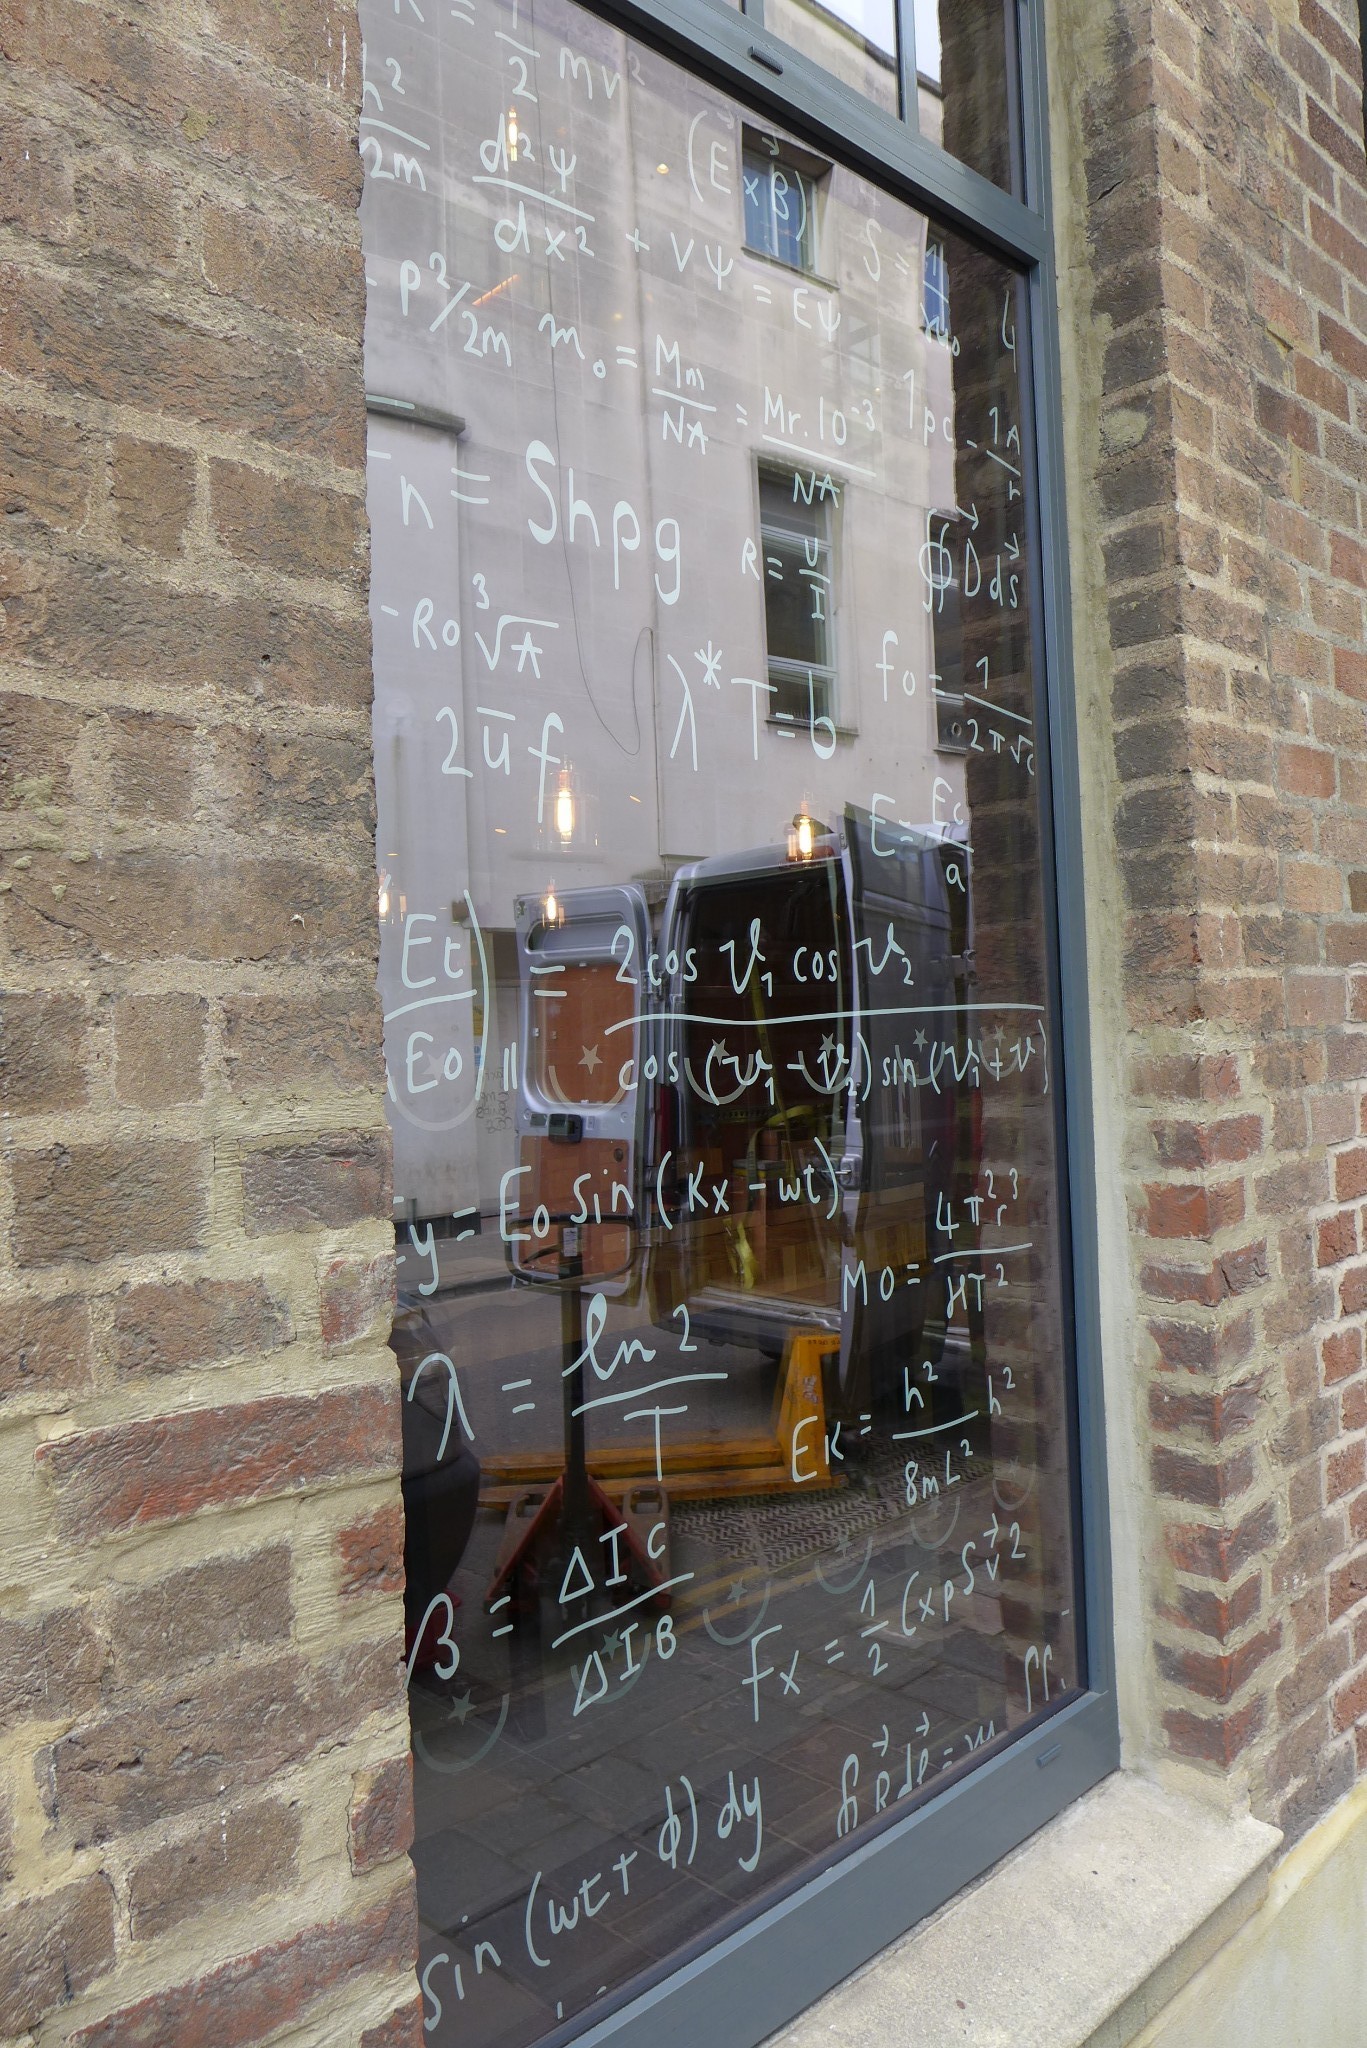 K = 1/2 mv²
ħ²/2m d²ψ/dx² + Vψ = Eψ
(E⃗ × B⃗)
S =
p²/2m
m₀ = Mm/NA = Mr.10⁻³/NA
1pc
n = Shpg
R = U/I
∯ D⃗ ds⃗
- Ro ∛A
λ* T = b
f₀ = 1/2π√
2ūf
E = Ec/a
Et/Eo) = 2cos v₁ cos v₂/cos (v₁ - v₂) sin (v₁ + v
y = Eo sin (Kx - wt)
Mo = 4π²r³/HT²
λ = ln 2/T
EK = h²/8mL² h²
β = ΔIc/ΔIB
Fx = 1/2 (xpSv⃗²
sin (wt + ϕ) dy